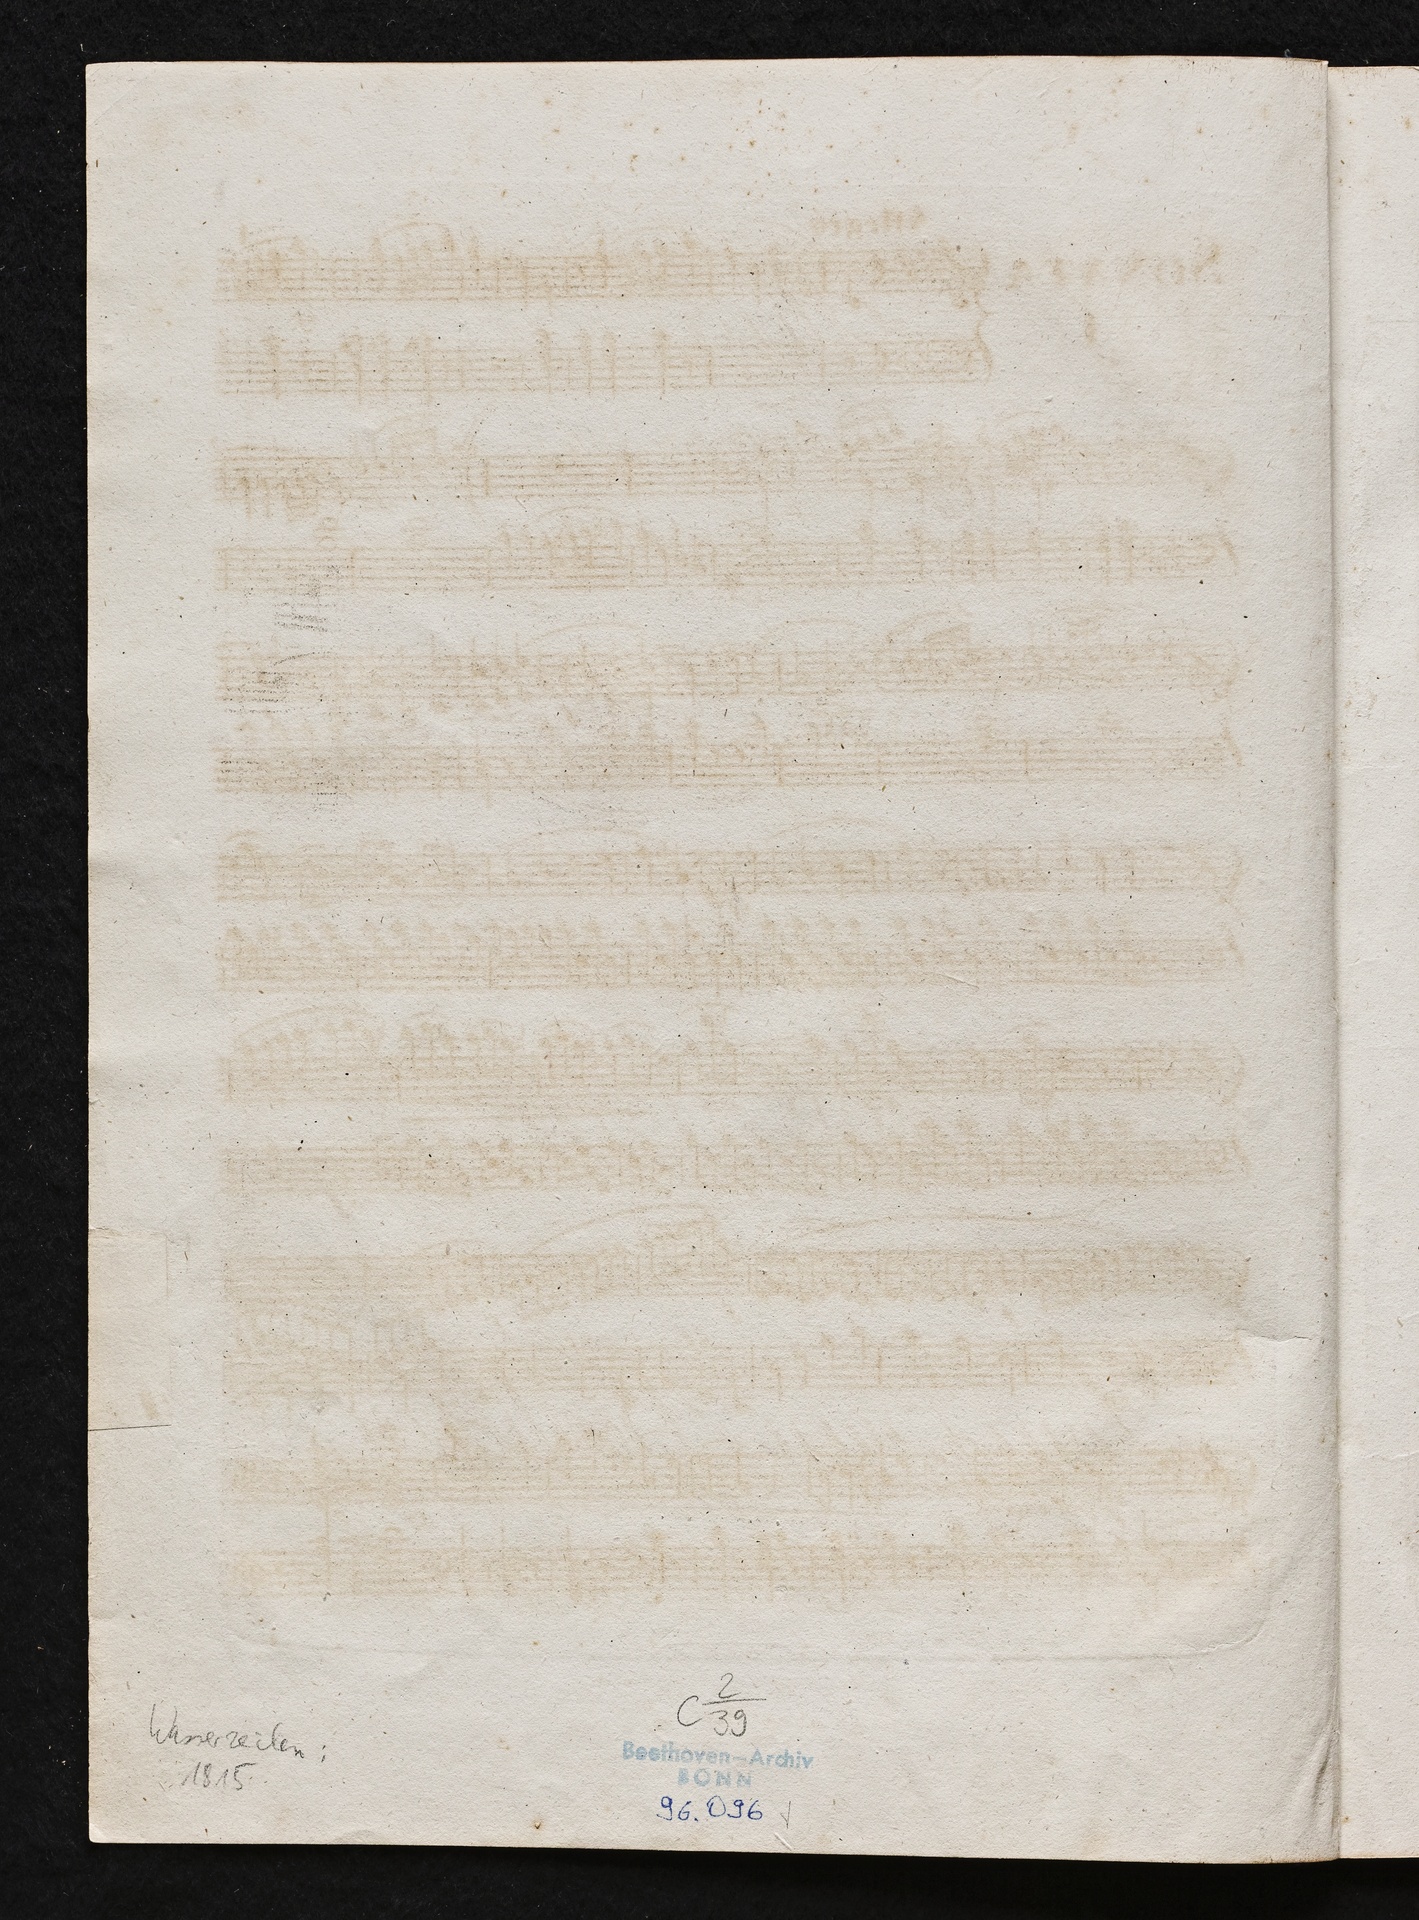 C 2/39
Wasserzeichen:
1815
Beethoven-Archiv
BONN
96.096